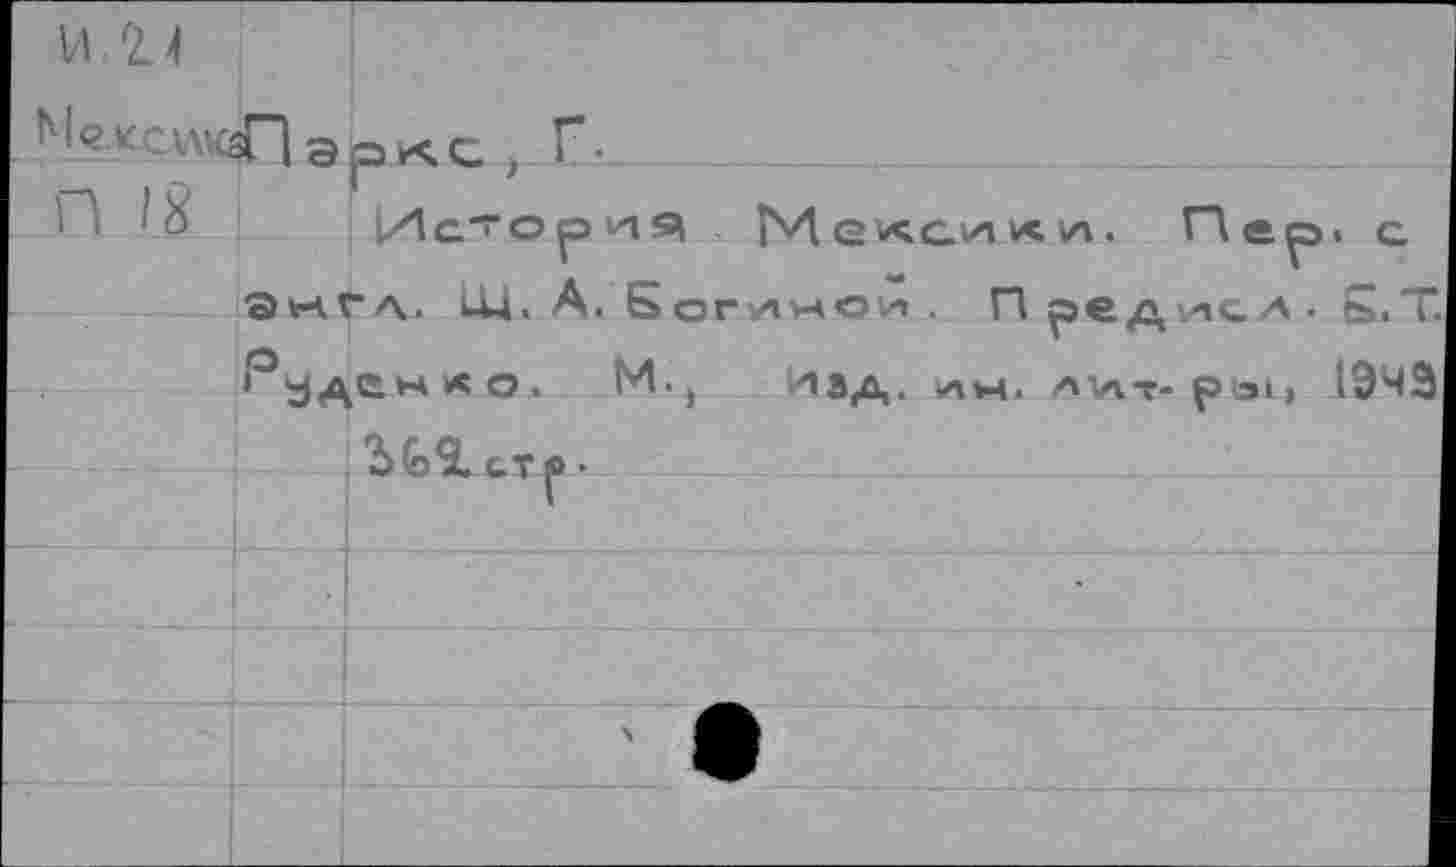 И.21
Мексика
П 18
Паркс, Г.
История Мексики. Пер. с
англ. Ш. А. Богиной. Предисл. Б.Т.
Руденко. М., Изд. ин. лит-ры, 1949
362 стр.